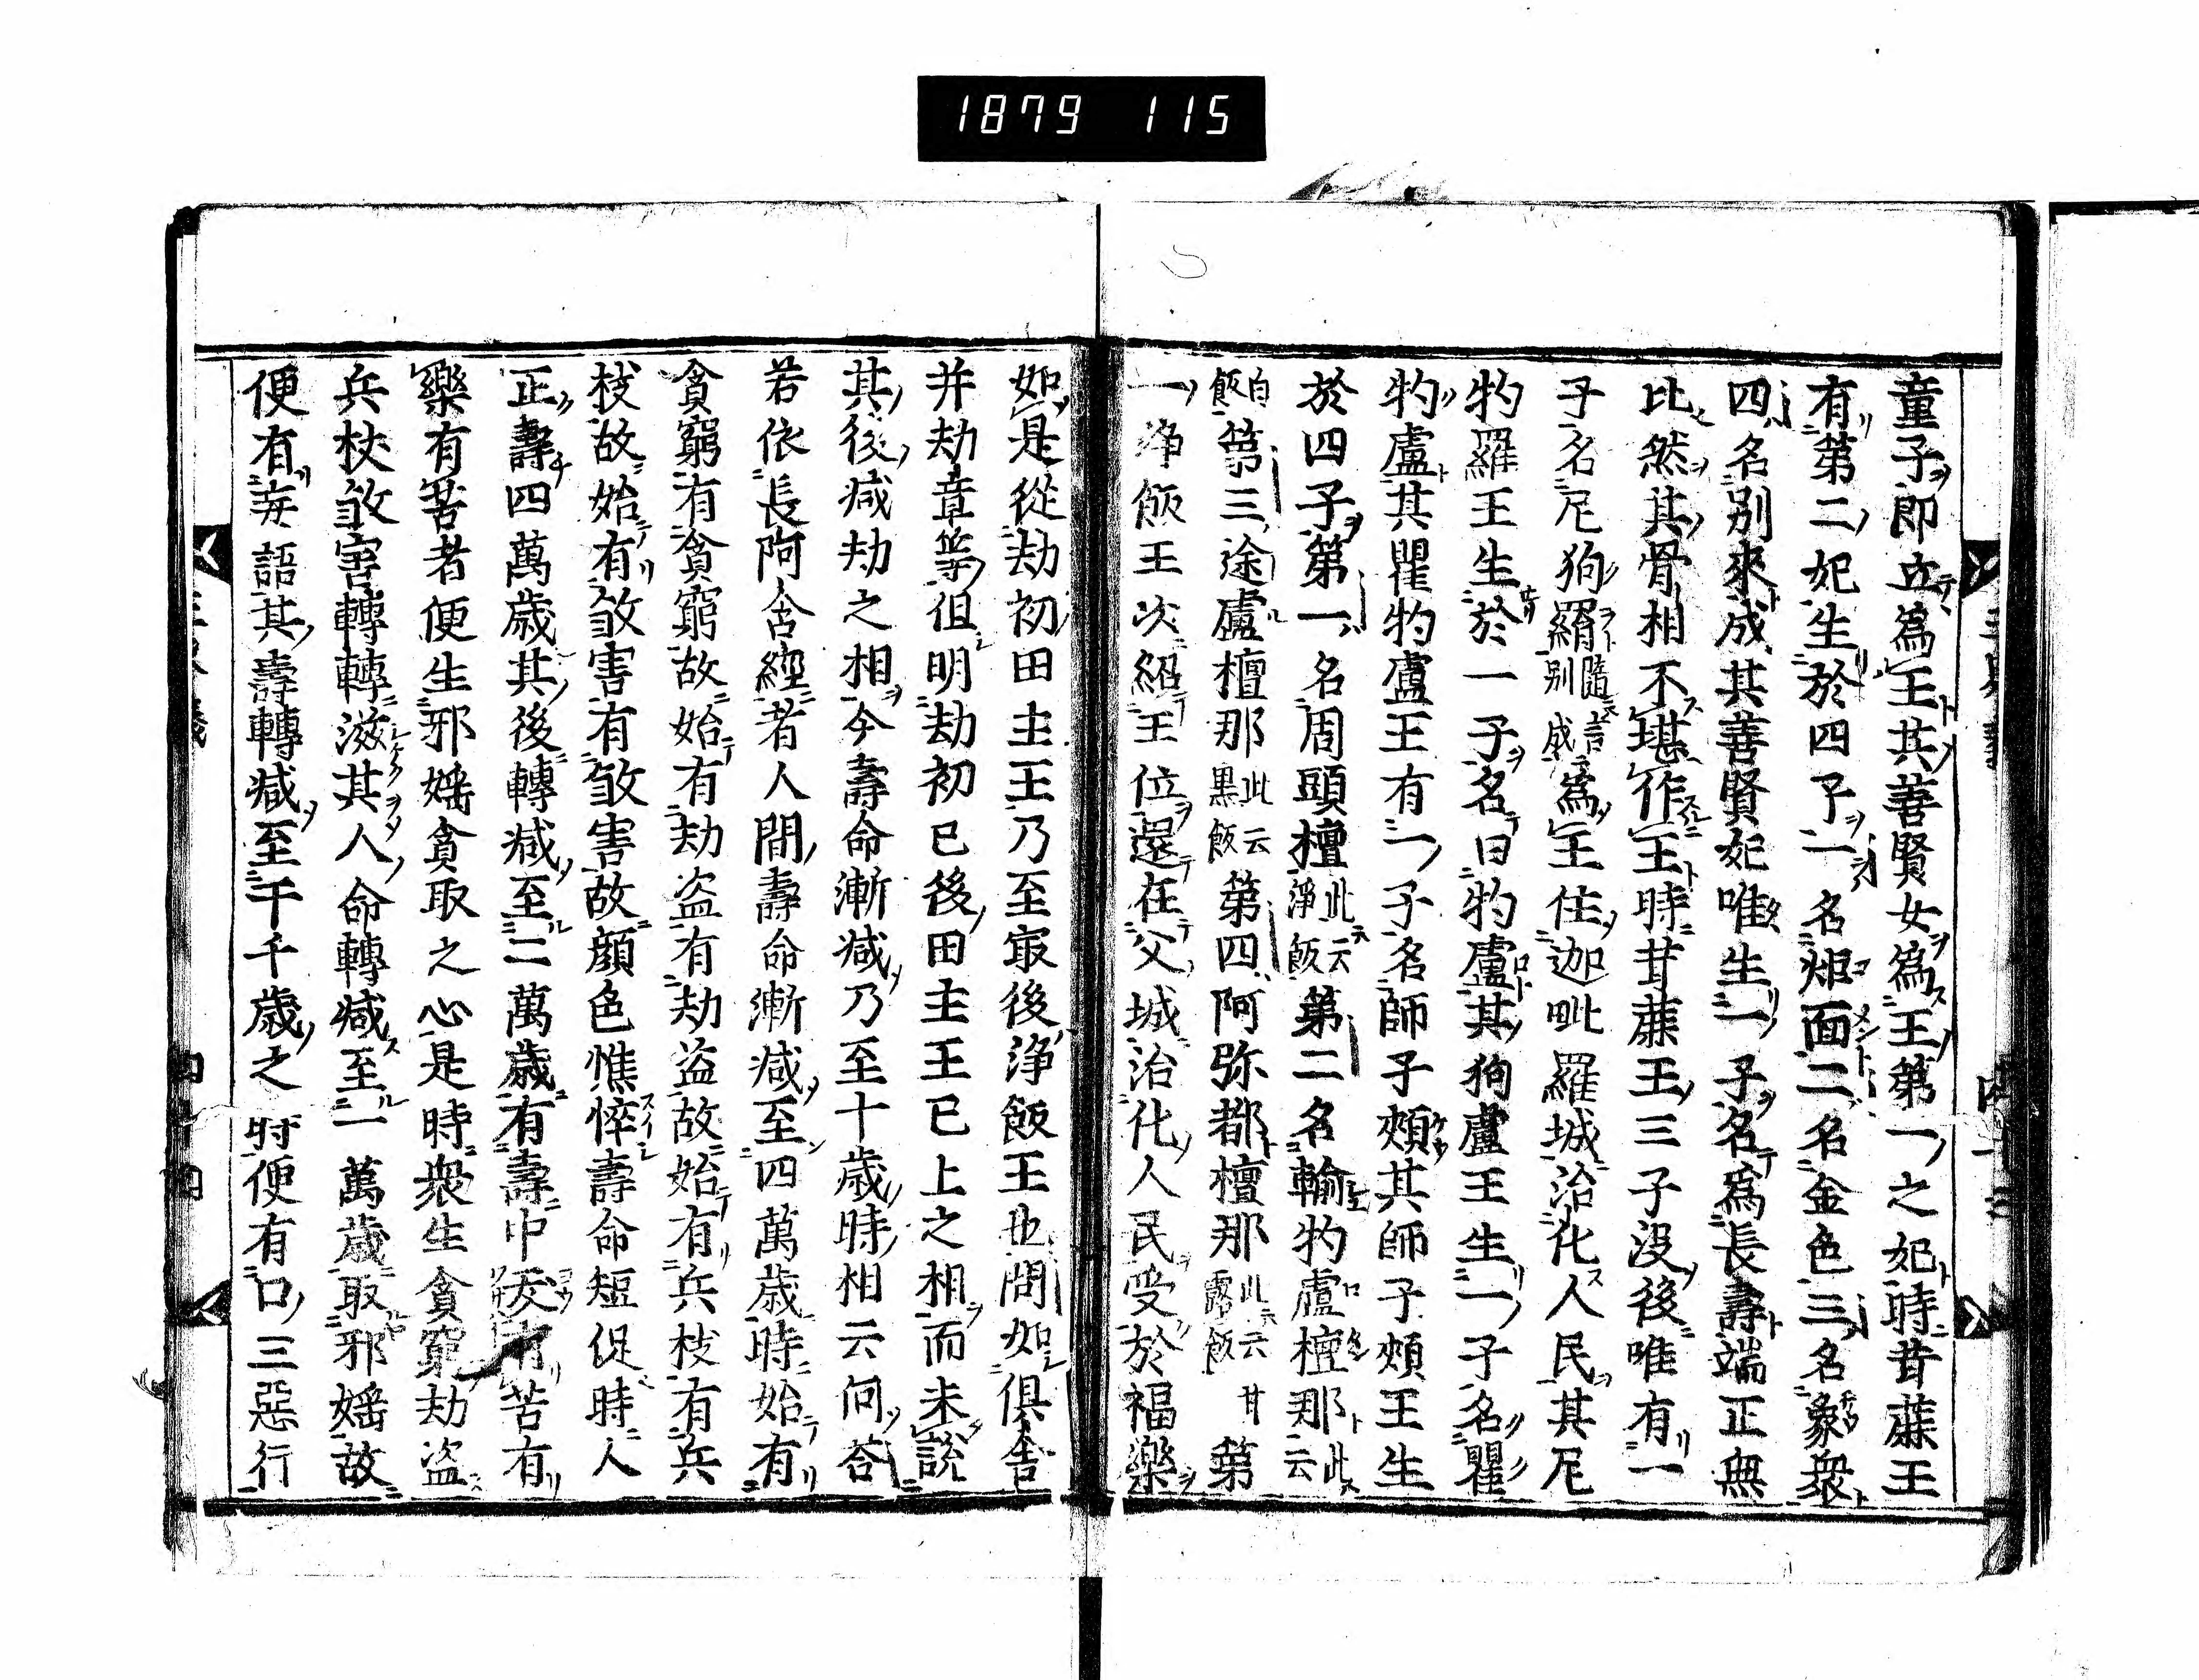 1879 115
童子即立爲王其善賢女爲王第一之妃時甘蔗王
有第二妃生於四子一名炬面二名金色三名象衆
四名別來成其善賢妃唯生一子名爲長壽端正無
比然其骨相不堪作王時甘蔗王三子没後唯有一
子名尼狗羅隨言別成爲王住迦毗羅城治化人民其尼
狗羅王生於一子名曰狗盧其狗盧王生一子名瞿
狗盧其瞿狗盧王有一子名師子頰其師子頰王生
於四子第一名周頭檀此云淨飯第二名輸狗盧檀那此云
白飯第三途盧檀那此云黑飯第四阿弥都檀那此云甘露飯第
一净飯王次紹王位還在父城治化人民受於福樂
如是從劫初田主王乃至冣後浄飯王也問如俱舍
并劫章等但明劫初已後田主王已上之相而未説
其後減劫之相今壽命漸減乃至十歳時相云何荅
若依長阿含經者人間壽命漸減至四萬歳時始有
貪窮有貪窮故始有劫盗有劫盗故始有兵杖有兵
杖故始有煞害有煞害故顔色憔悴壽命短促時人
正壽四萬歳其後轉減至二萬歳有壽中夭有苦有
樂有苦者便生邪婬貪取之心是時衆生貪窮劫盗
兵杖煞害轉轉滋其人命轉減至一萬歳取邪婬故
便有妄語其壽轉減至千千歳之時便有口三惡行
四十四